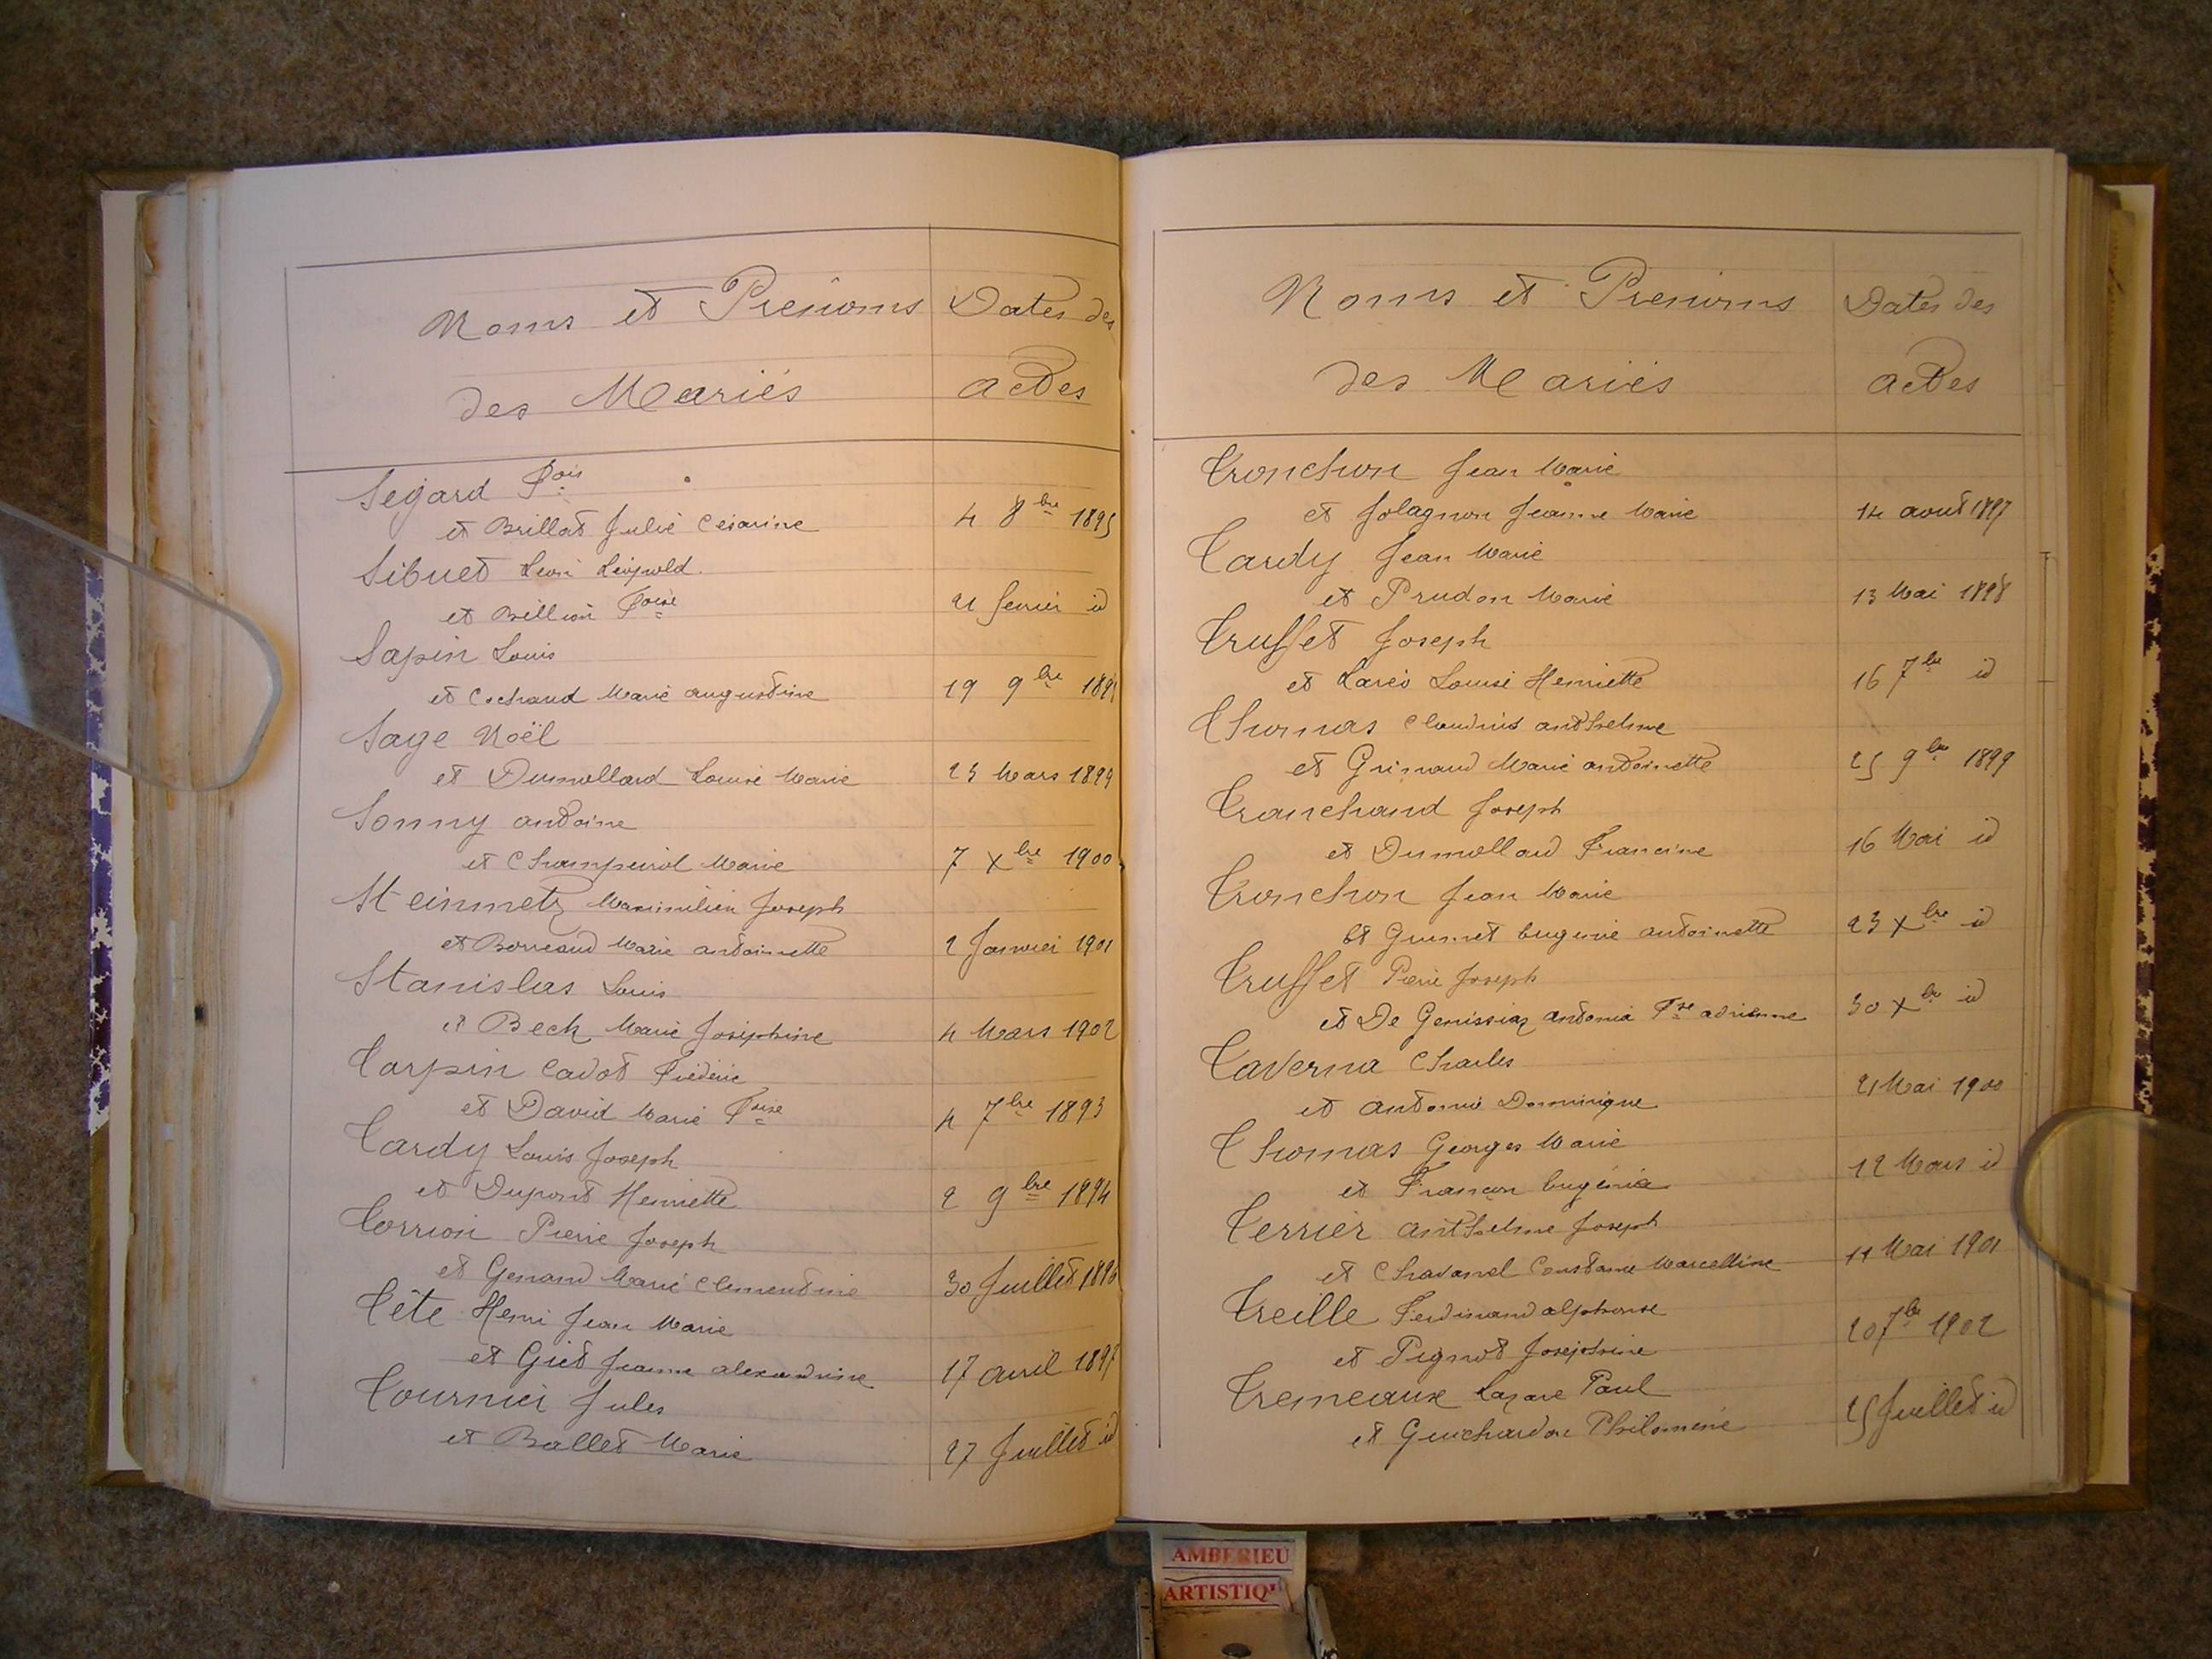 Noms et Prénoms Dates des
des Mariés actes
Segard Fois
et Brillat Julie Césarine 4 8bre 1895
Sibuet Léon Léopold.
et Billion Foise 21 fevrier id
Sapin Louis
et Cochand Marie augustine 19 9bre 189
Sage Noël
et Dumollard Louise Marie 23 Mars 1899
Sonny antoine
et Champeirol Marie 7 Xbre 1900
Steinmetz Maximilien Joseph
et Borreaud Marie antoinette 2 Janvier 1901
Stanislas Louis
et Beck Marie Joséphine 4 Mars 1902
Tarpin Cadot Frédéric
et David Marie Foise 4 7bre 1893
Tardy Louis Joseph
et Dupont Henriette 2 9bre 1894
Torrion Pierre Joseph
et Genand Marie Clementine 30 Juillet 1896
Tête Henri Jean Marie
et Giet Jeanne alexandrine 17 avril 1897
Tournier Jules
et Ballet Marie 27 Juillet id
Noms et Prenoms Dates des
des Mariés actes
Tronchon Jean Marie
et Jolagnon Jeanne Marie 14 aout 1897
Tardy Jean Marie
et Prudon Marie 13 Mai 1898
Truffet Joseph
et Louise Henriette 16 7bre id
Thomas Claudius anthelme
et Grimaud Marie antoinette 25 9bre 1899
Tranchand Joseph
et Dumollard Francine 16 Mai id
Tronchon Jean Marie
et Guimet Eugenie antoinette 23 Xbre id
Truffet Pierre Joseph
et De Genissiaz antonia Fse adrienne 30 Xbre id
Taverna Charles
et antonie Dominique 21 Mai 1900
Thomas Georges Marie
et Françon Eugénie 12 Mars id
Terrier anthelme Joseph
et Chavanel Constance Marcelline 11 Mai 1901
Treille Ferdinand alphonse
et Pignot Joséphine 20 7bre 1902
Tremeaux Lazare Paul
et Guichardon Philomène 25 Juillet id
AMBERIEU
ARTISTIQU